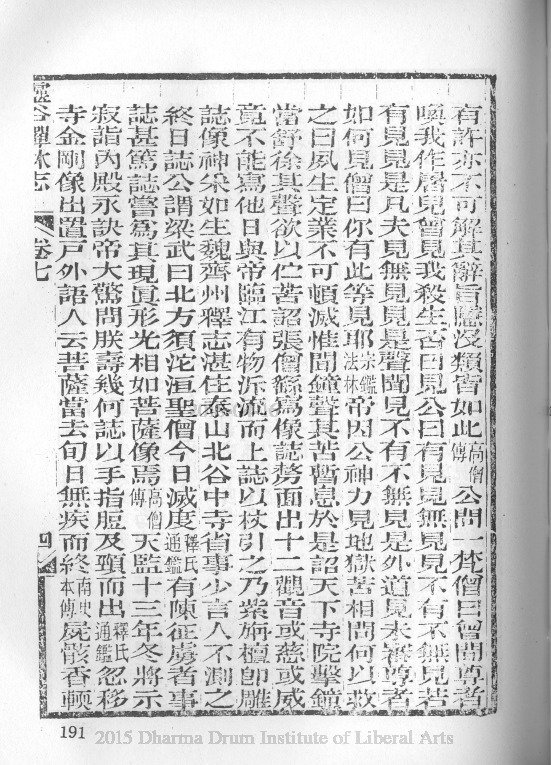 有許亦不可解其辭旨隱沒類皆如此高僧傳公問一梵僧曰曾聞尊者
喚我作屠兒曾見我殺生否曰見公曰有見見無見見不有不無見若
有見見是凡夫見無見見是聲聞見不有不無見是外道見未審尊者
如何見僧曰你有此等見耶宗鑑法林帝因公神力見地獄苦相問何以救
之曰夙生定業不可頓滅惟聞鐘聲其苦暫息於是詔天下寺院擊鐘
當舒徐其聲欲以伫苦詔張僧繇寫像誌剺面出十二觀音或慈或威
竟不能寫他日與帝臨江有物泝流而上誌以杖引之乃紫旃檀卽雕
誌像神朵如生魏齊州釋志湛住泰山北谷中寺省事少言人不測之
終日誌公謂梁武曰北方須沱洹聖僧今日滅度釋氏通鑑有陳征虜者事
誌甚篤誌嘗爲其現眞形光相如菩薩像焉高僧傳天監十三年冬將示
寂詣內殿永訣帝大驚問朕壽幾何誌以手指脰及頸而出釋氏通鑑忽移
寺金剛像出置戶外語人云菩薩當去旬日無疾而終南史本傳屍骸香輭
虛谷禪林志 卷七 四
191
2015 Dharma Drum Institute of Liberal Arts